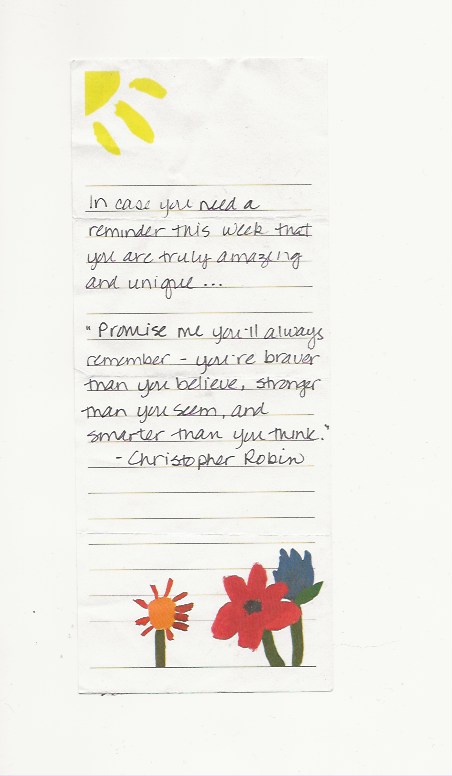 In case you need a
reminder this week that
you are truly amazing
and unique ...
"Promise me you'll always
remember - you're braver
than you believe, stronger
than you seem, and
smarter than you think."
- Christopher Robin